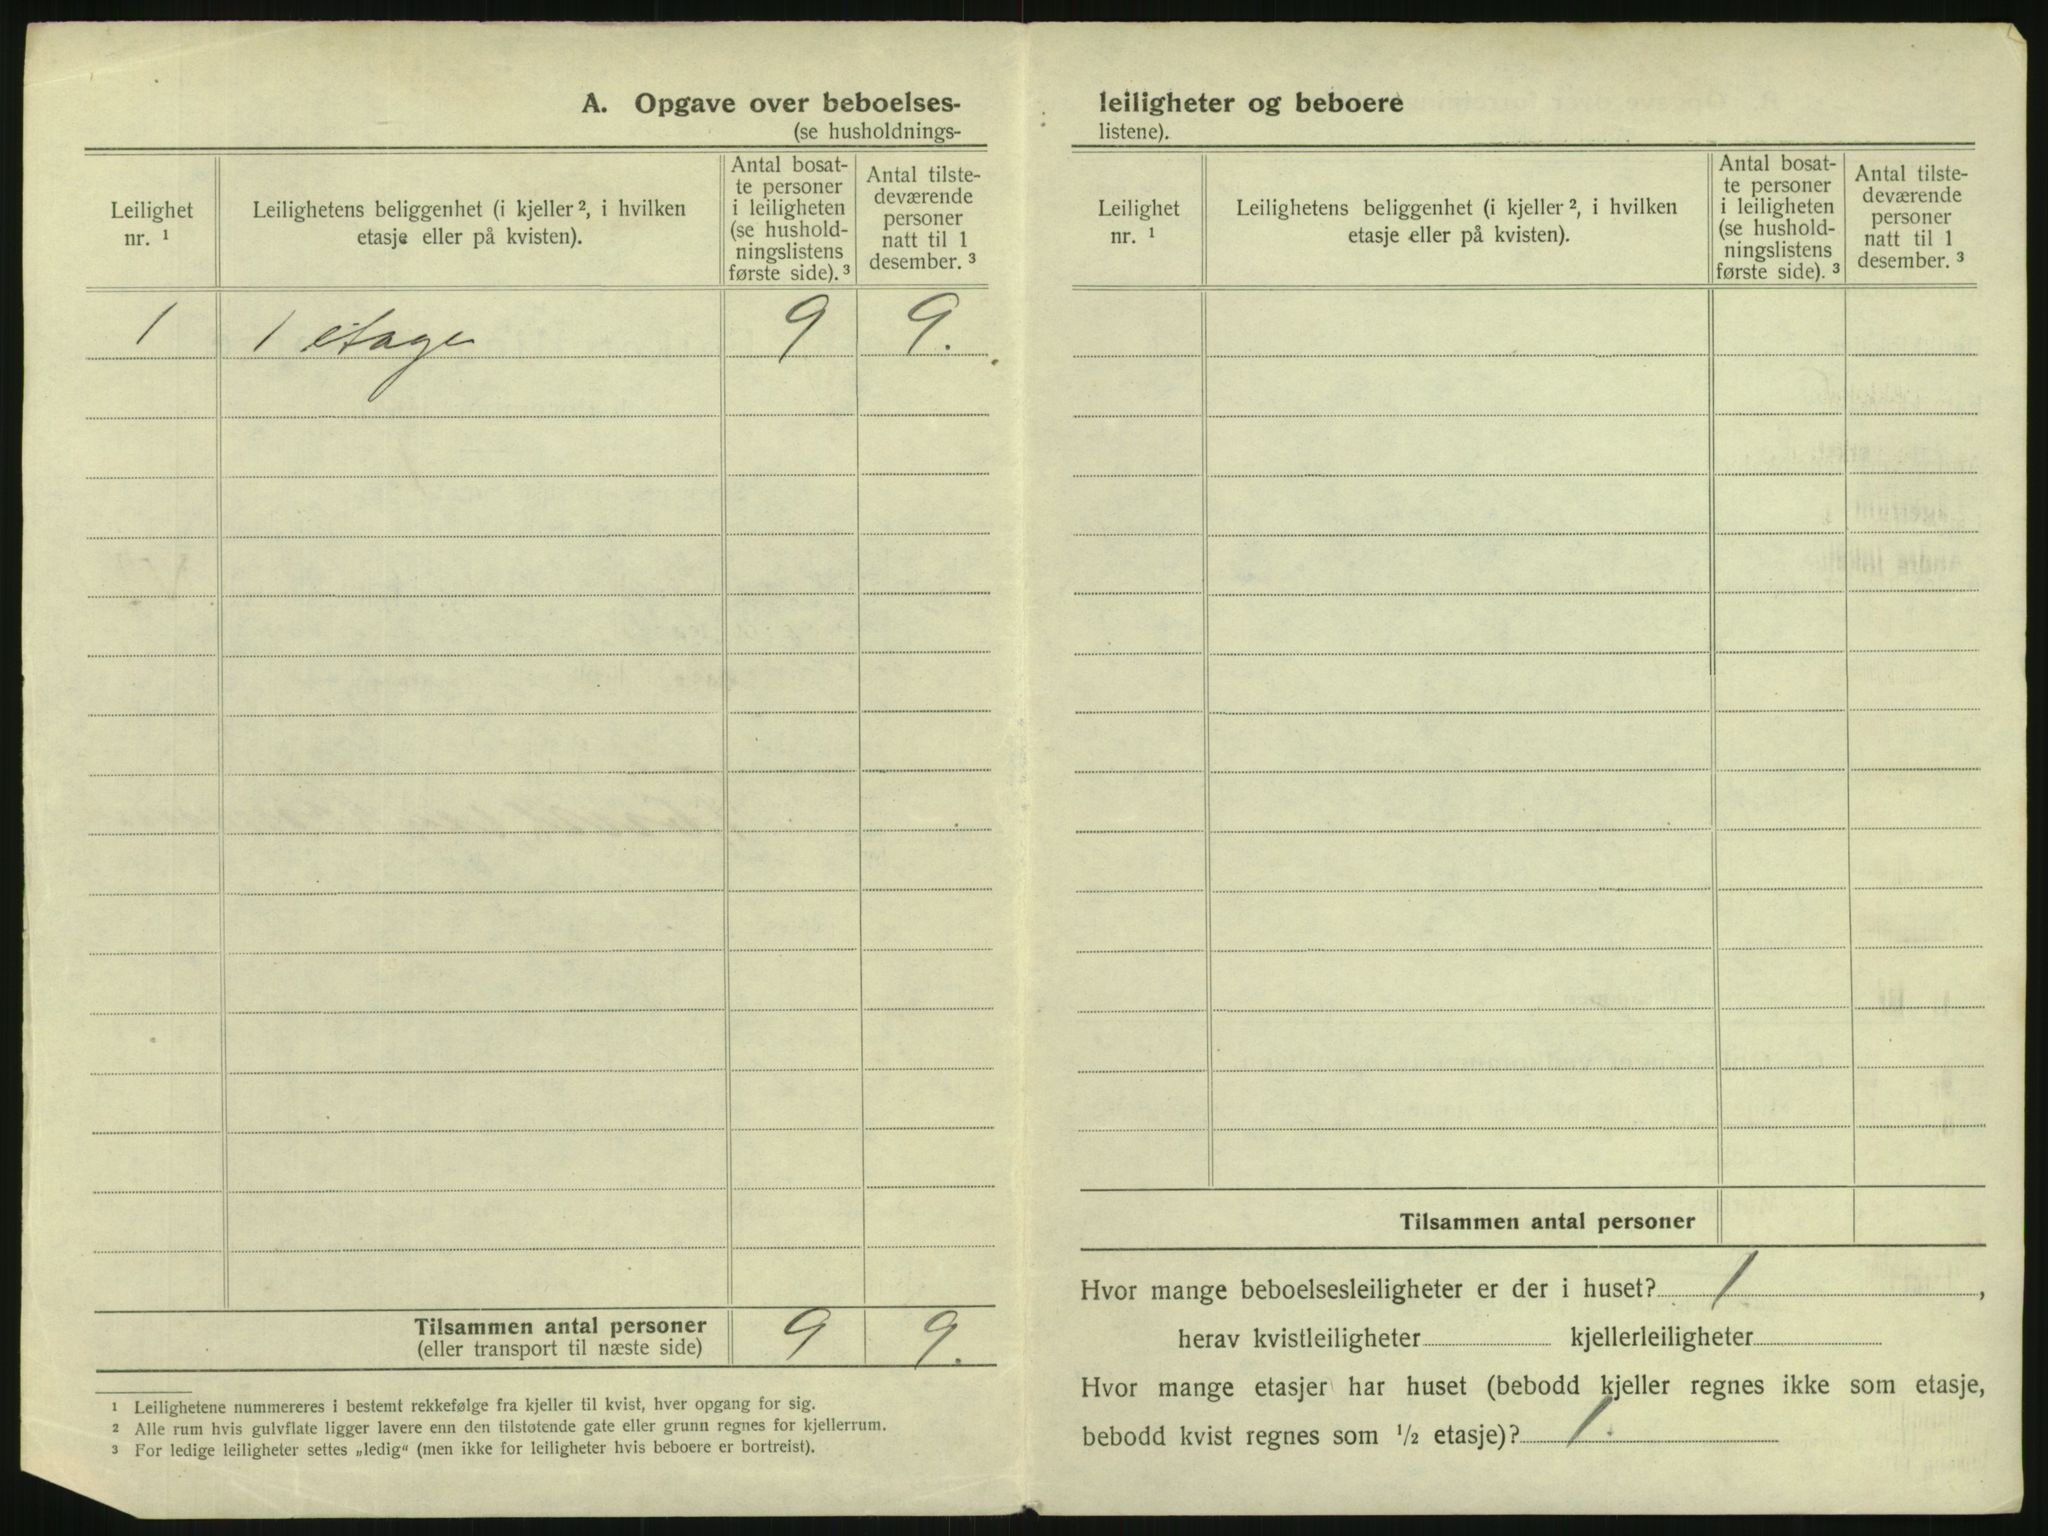 A. Opgave over beboelses-
(se husholdnings-
Leilighet
nr. ¹
Leilighetens beliggenhet (i kjeller ², i hvilken
etasje eller på kvisten).
Antal bosat-
te personer
i leiligheten
(se hushold-
ningslistens
første side). ³
Antal tilste-
deværende
personer
natt til 1
desember. ³
1 1 etage 9 9.
Tilsammen antal personer 9 9.
(eller transport til næste side)
¹ Leilighetene nummereres i bestemt rekkefølge fra kjeller til kvist, hver opgang for sig.
² Alle rum hvis gulvflate ligger lavere enn den tilstøtende gate eller grunn regnes for kjellerrum.
³ For ledige leiligheter settes „ledig“ (men ikke for leiligheter hvis beboere er bortreist).
leiligheter og beboere
listene).
Leilighet
nr. ¹
Leilighetens beliggenhet (i kjeller ², i hvilken
etasje eller på kvisten).
Antal bosat-
te personer
i leiligheten
(se hushold-
ningslistens
første side). ³
Antal tilste-
deværende
personer
natt til 1
desember. ³
Tilsammen antal personer
Hvor mange beboelsesleiligheter er der i huset? 1,
herav kvistleiligheter kjellerleiligheter
Hvor mange etasjer har huset (bebodd kjeller regnes ikke som etasje,
bebodd kvist regnes som ½ etasje)? 1.